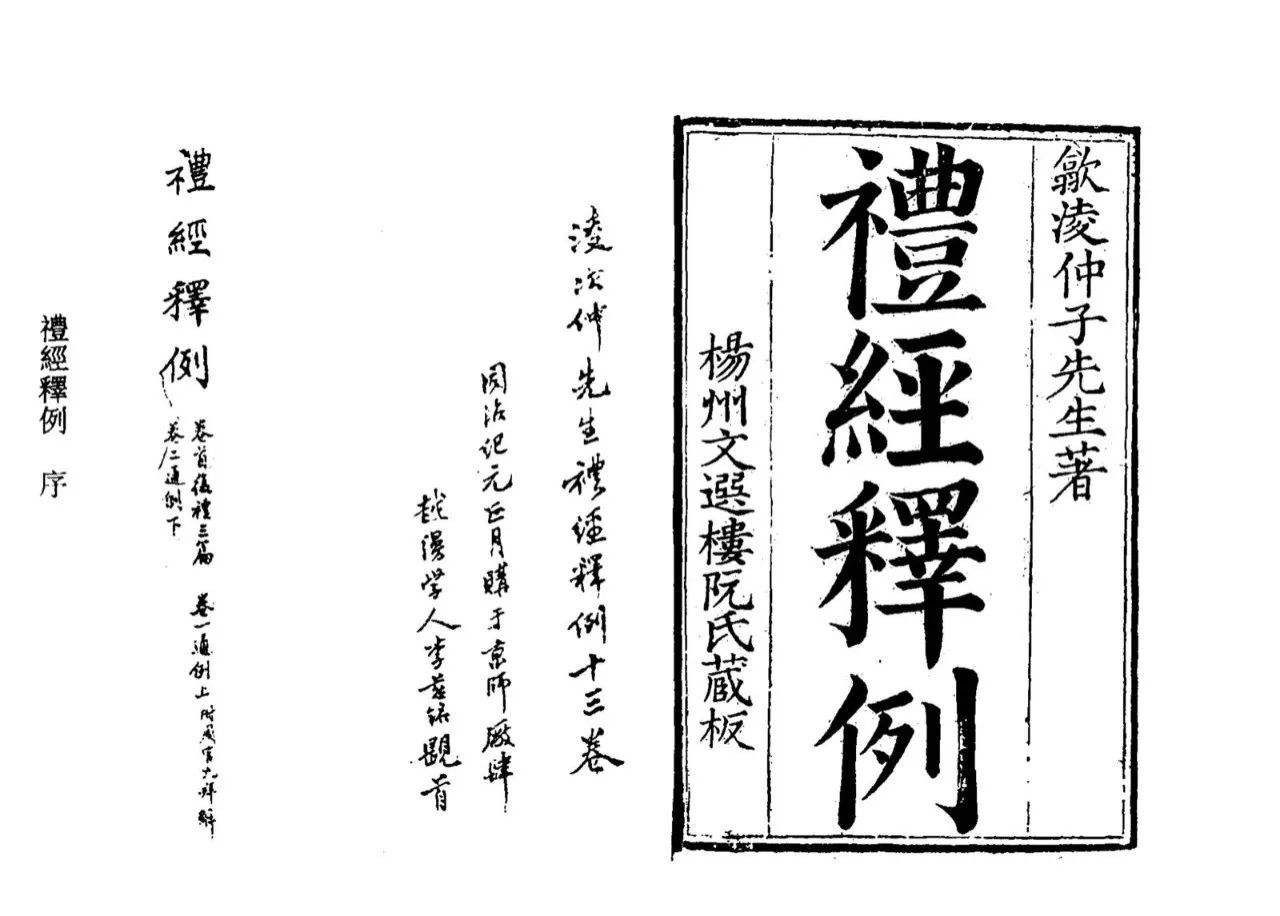 歙淩仲子先生著
禮經釋例
楊州文選樓阮氏蔵板
淩次仲先生禮經釋例十三卷
同治紀元正月購于京師廠肆
越縵学人李慈銘題首
禮經釋例
卷首復禮三篇 卷一通例上附周官九拜解
卷二通例下
禮經釋例 序